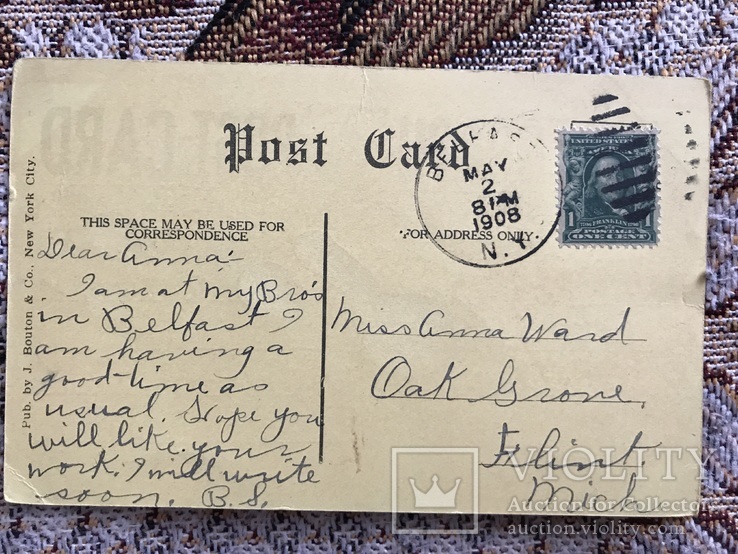 Post Card
BELFAST
MAY
2
8 PM
1908
N.Y.
UNITED STATES
1
FRANKLIN
1
POSTAGE
ONE CENT
THIS SPACE MAY BE USED FOR
CORRESPONDENCE
FOR ADDRESS ONLY.
Pub. by J. Bouton & Co., New York City.
Dear Anna:
I am at my Bro's
in Belfast I
am having a
good-time as
usual. Hope you
will like your
work. I will write
soon. B. S.
Miss Anna Ward
Oak Grove,
Flint,
Mich
VIOLITY
Auction for Collectors
auction.violity.com